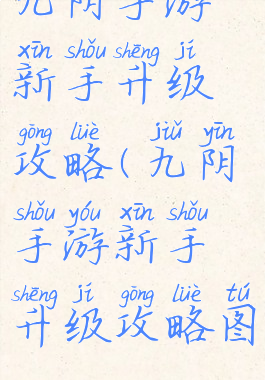 九阴手游
xīn shǒu shēng jí
新手升级
gōng lüè jiǔ yīn
攻略(九阴
shǒu yóu xīn shǒu
手游新手
shēng jí gōng lüè tú
升级攻略图